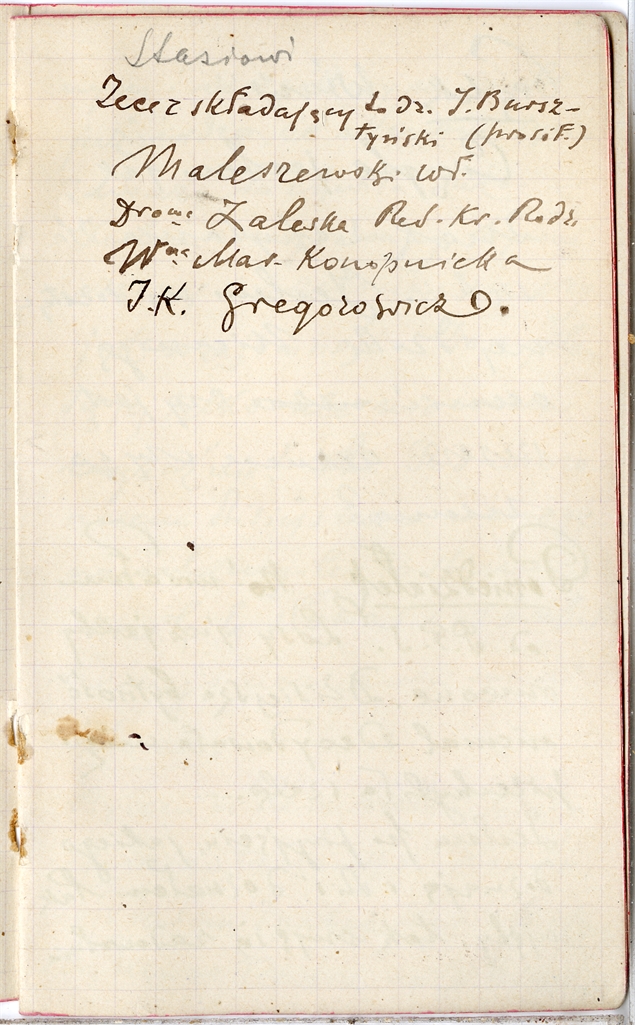 Stasiowi
Zecer składający to dz. J. Bursz-
tyński (prosił.)
Maleszewski wł.
Drowa Zaleska Red. Kr. Rodz.
Wna Mar. Konopnicka
J.K. Gregorowicz.